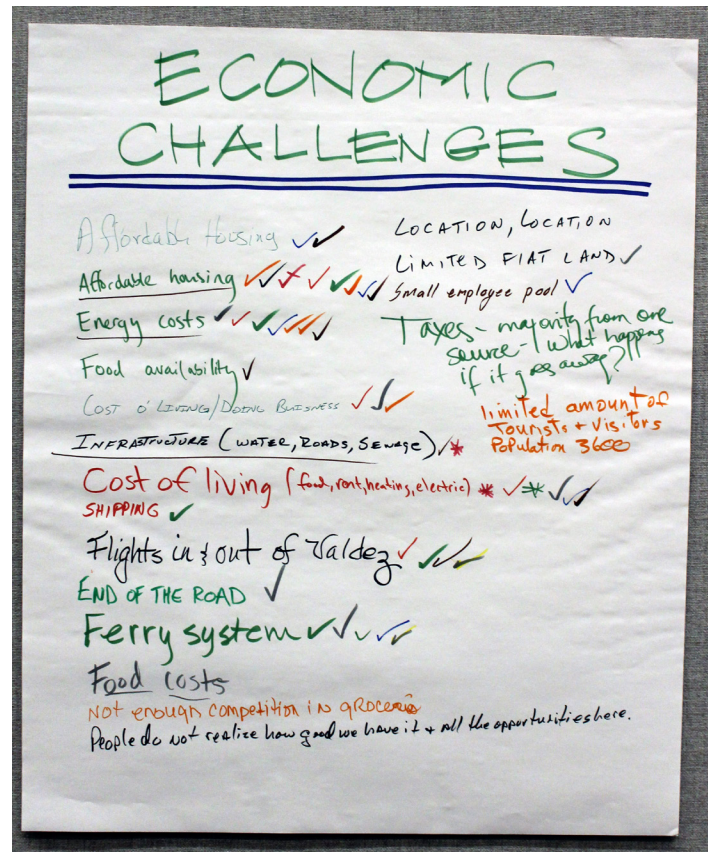 ECONOMIC
CHALLENGES
Affordable Housing ✓✓
Affordable housing ✓✓✓✓✓✓✓✓
Energy costs ✓✓✓✓✓✓✓
Food availability ✓
COST O' LIVING/DOING BUISNESS ✓✓✓
INFRASTRUCTURE (WATER, ROADS, SEWAGE) ✓*
Cost of living (food, rent, heating, electric) * ✓ * ✓✓✓
SHIPPING ✓
Flights in & out of Valdez ✓✓✓✓
END OF THE ROAD ✓
Ferry system ✓✓✓✓✓
Food costs
Not enough competition in groceries
People do not realize how good we have it + all the opportunities here.
LOCATION, LOCATION
LIMITED FLAT LAND ✓
Small employee pool ✓
Taxes - majority from one
source - what happens
if it goes away?
limited amount of
Tourists + Visitors
Population 3600